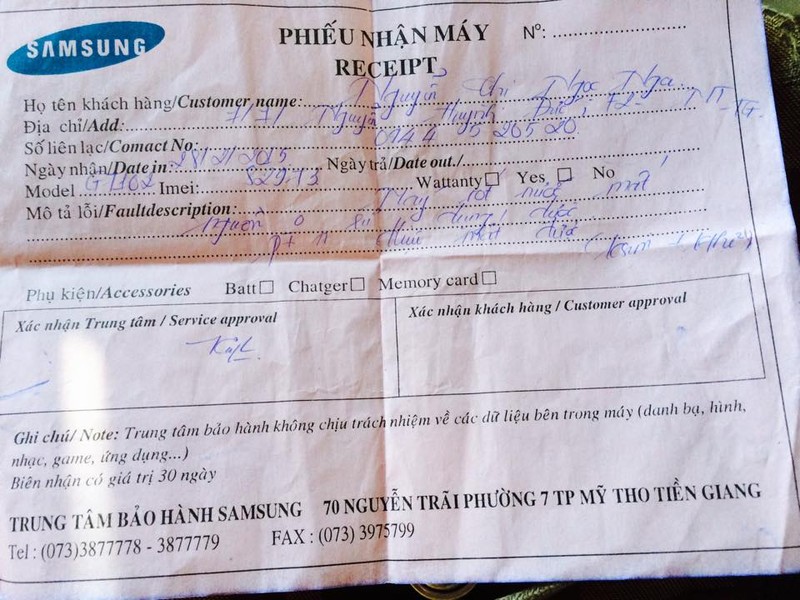 SAMSUNG
PHIẾU NHẬN MÁY Nº:
RECEIPT
Họ tên khách hàng/Customer name: Nguyễn Chi Ngọc Nga
Địa chỉ/Add: 7/71 Nguyễn Huỳnh Đức, F2-
Số liên lạc/Comact No:
Ngày nhận/Date in: 28/2/2015 Ngày trả/Date out./
Model G7102 Imei: 82973 Wattanty Yes, No
Mô tả lỗi/Faultdescription: Máy rớt nước mất
nguồn
Phụ kiện/Accessories Batt Chatger Memory card
Xác nhận Trung tâm / Service approval
Xác nhận khách hàng / Customer approval
Ghi chú/ Note: Trung tâm bảo hành không chịu trách nhiệm về các dữ liệu bên trong máy (danh bạ, hình,
nhạc, game, ứng dụng...)
Biên nhận có giá trị 30 ngày
TRUNG TÂM BẢO HÀNH SAMSUNG 70 NGUYỄN TRÃI PHƯỜNG 7 TP MỸ THO TIỀN GIANG
Tel : (073)3877778 - 3877779 FAX : (073) 3975799